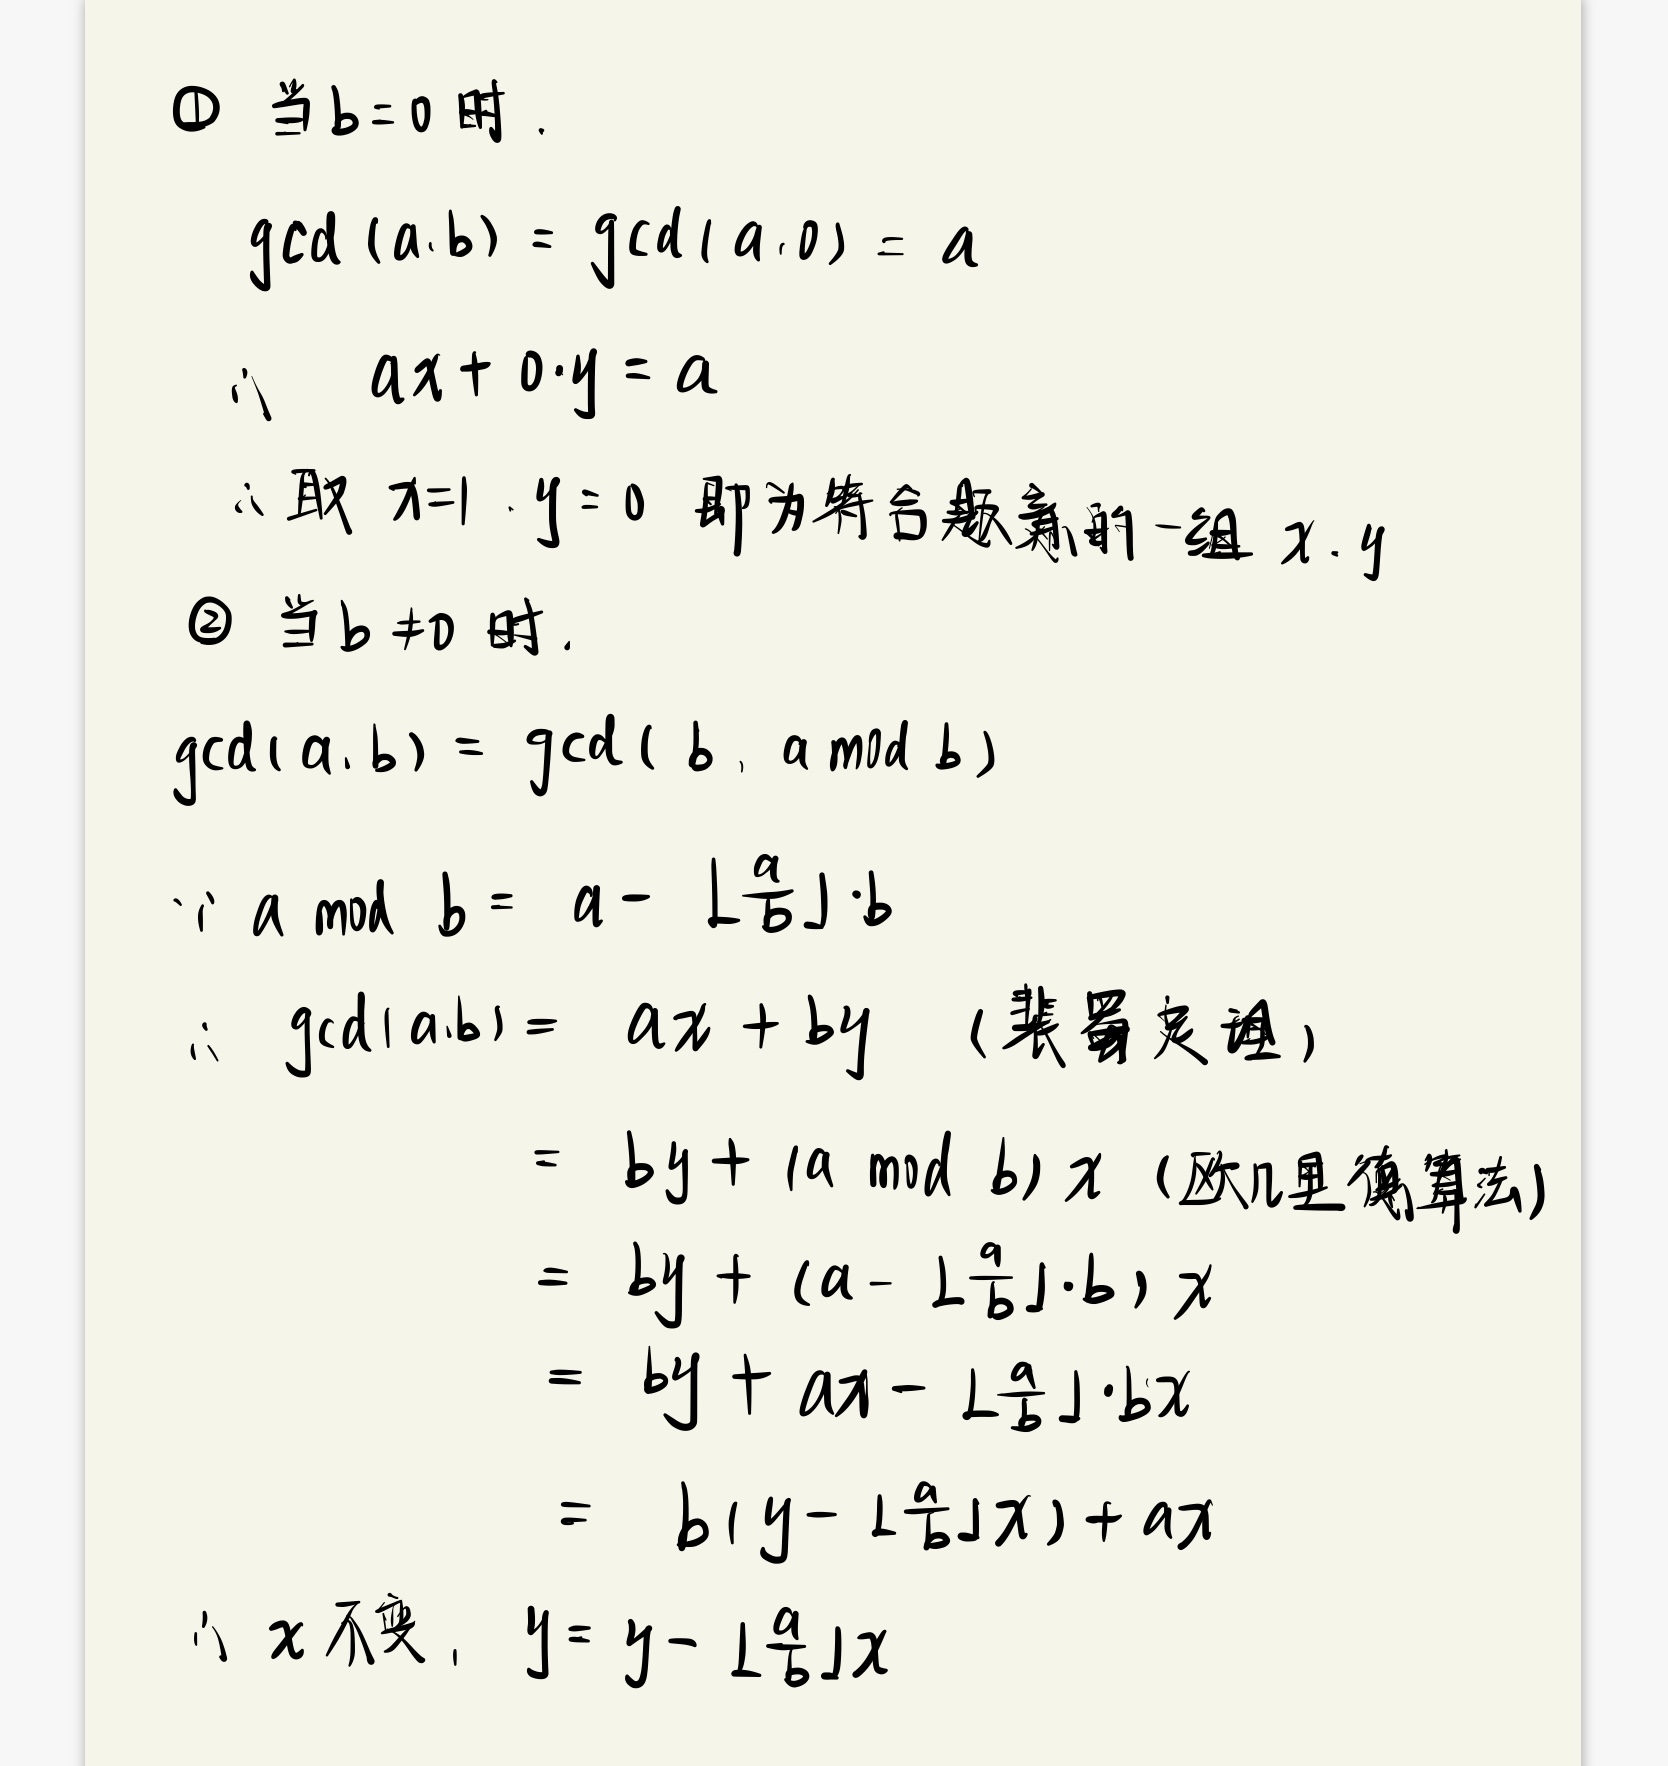 ① 当 b = 0 时.
gcd (a, b) = gcd (a, 0) = a
∴ ax + 0·y = a
∴ 取 x=1, y = 0 即为符合题意的一组 x, y
② 当 b ≠ 0 时.
gcd (a, b) = gcd ( b, a mod b )
∵ a mod b = a - ⌊a/b⌋·b
∴ gcd (a, b) = ax + by (裴蜀定理)
= by + (a mod b) x (欧几里德算法)
= by + (a - ⌊a/b⌋·b) x
= by + ax - ⌊a/b⌋·bx
= b ( y - ⌊a/b⌋x ) + ax
∴ x 不变, y = y - ⌊a/b⌋x